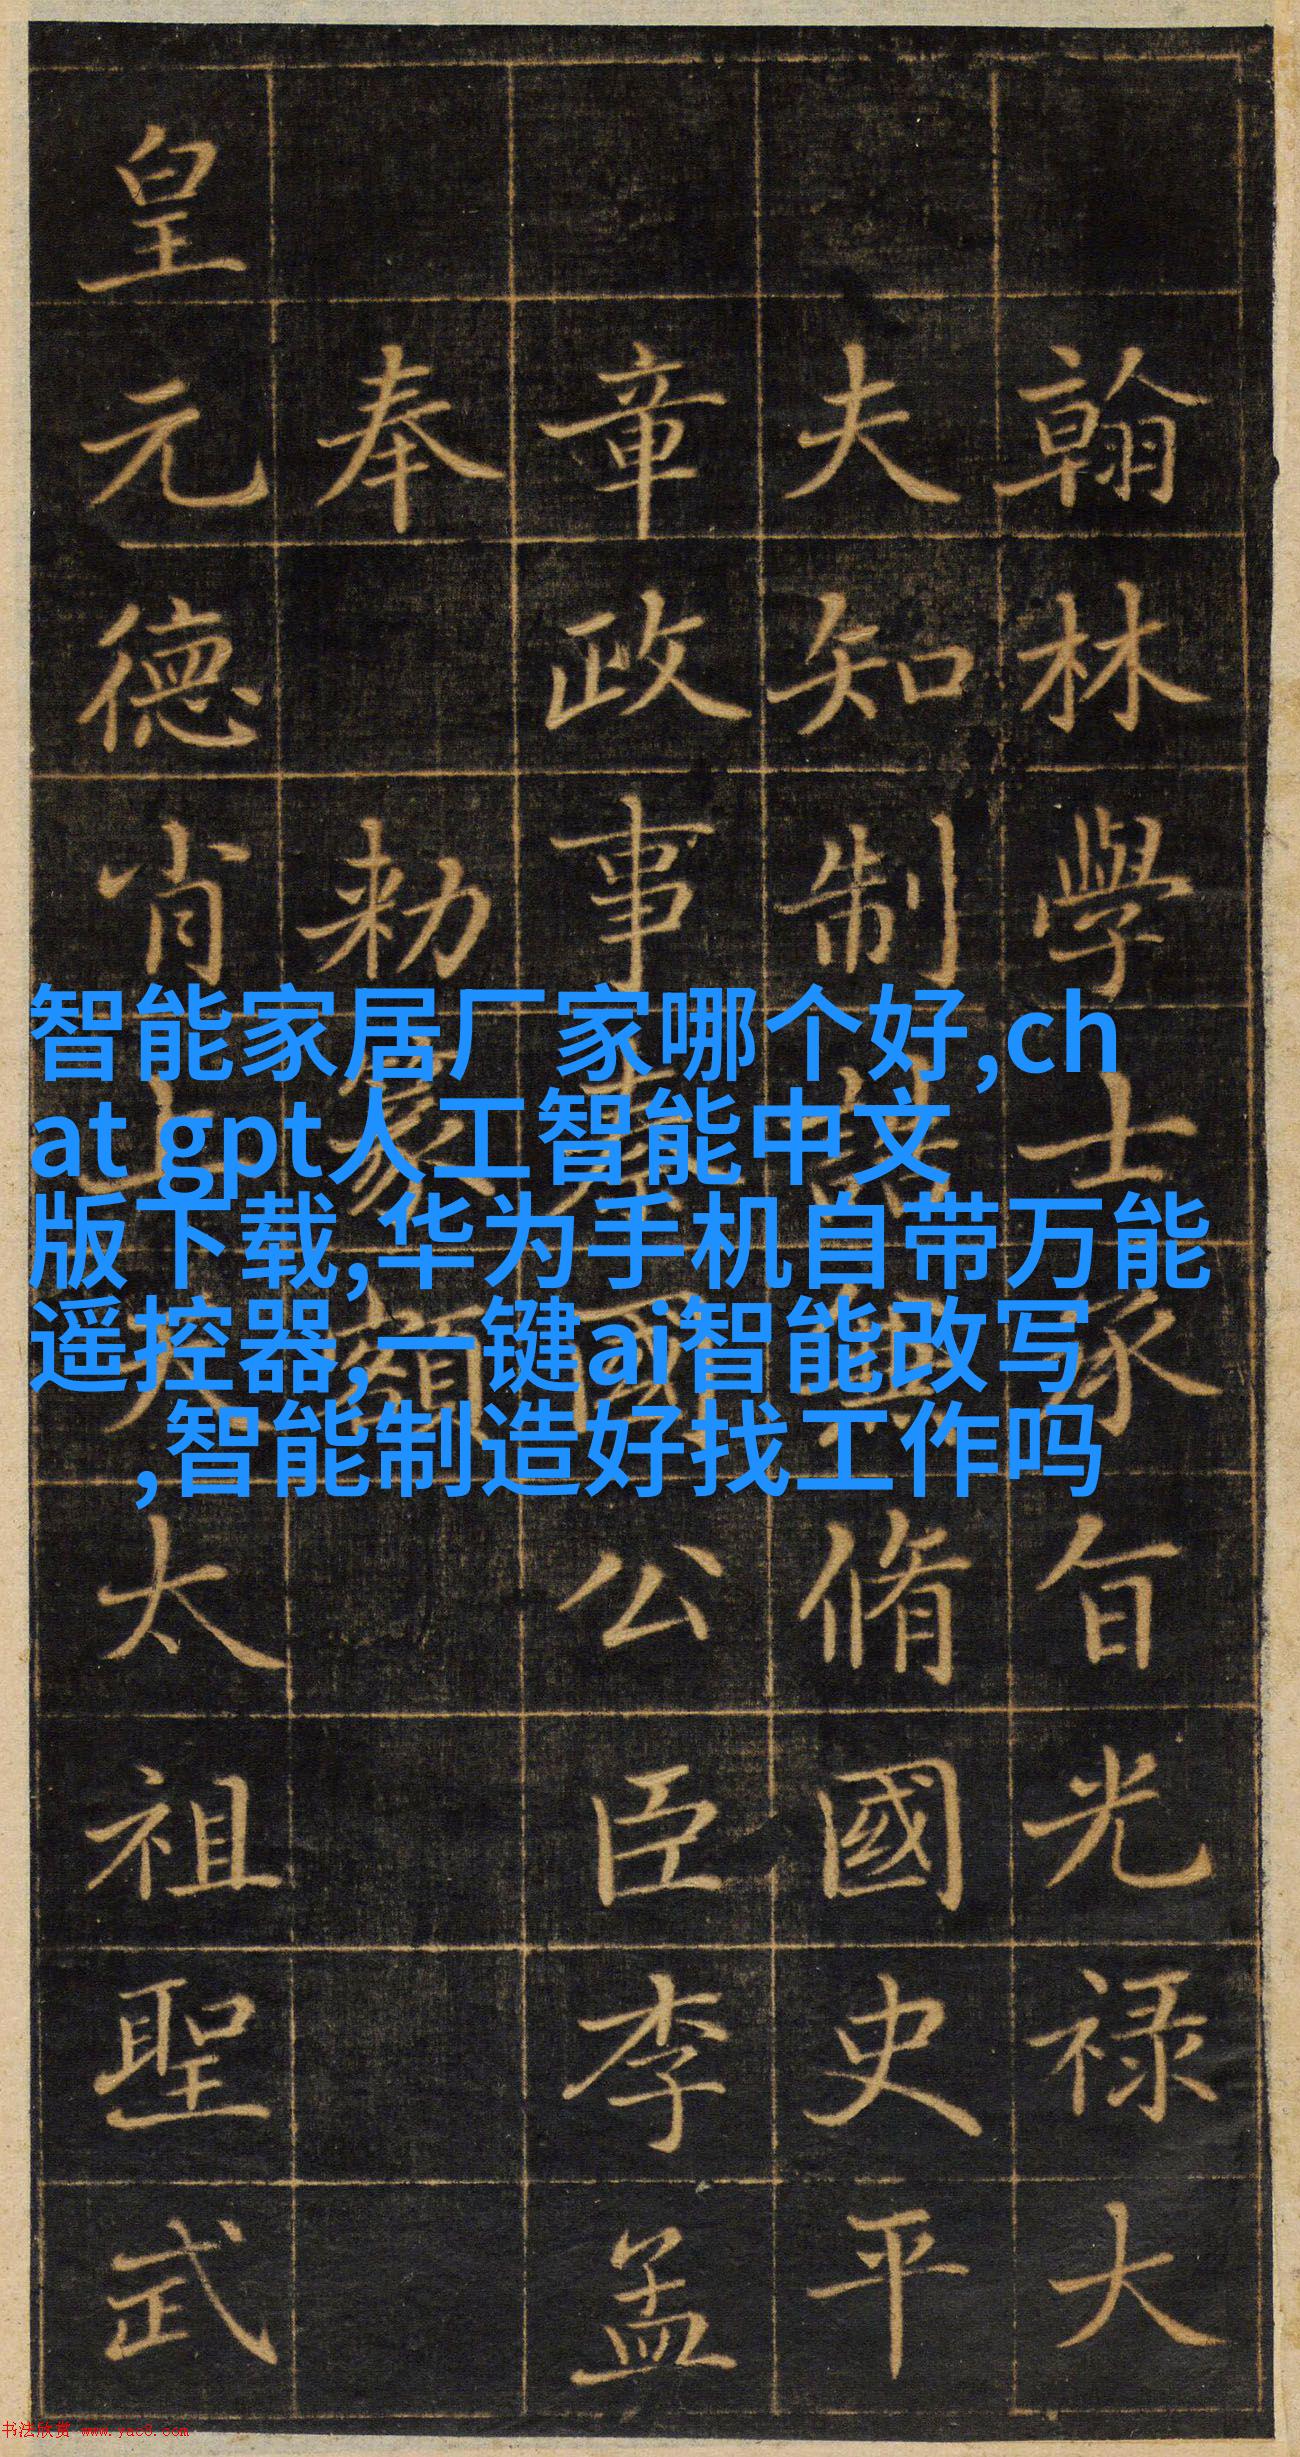 翰林學士承旨光禄大
夫知制誥兼脩國史平
章政事秦國公臣李孟
奉勅篆額
皇元德肖上天太祖聖武
智能家居厂家哪个好,ch
at gpt人工智能中文
版下载,华为手机自带万能
遥控器,一键ai智能改写
,智能制造好找工作吗
书法欣赏 www.yac8.com